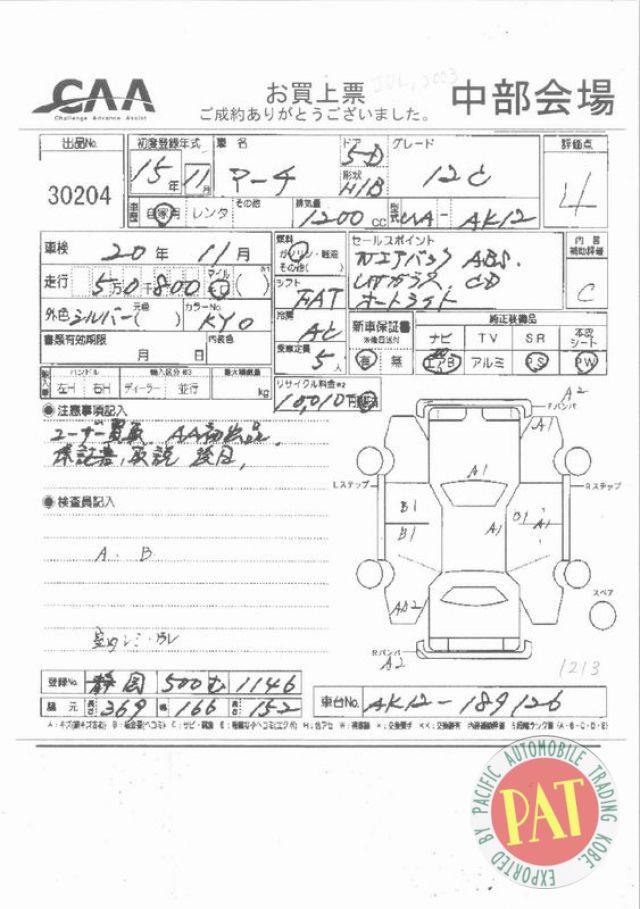 CAA
Challenge Advance Assist
お買上票
JUL, 2003
ご成約ありがとうございました。
中部会場
出品No.
30204
初度登録年式
15年 11月
車名
マーチ
ドア
5-D
形状
H/B
グレード
12c
評価点
4
車歴
自家用 レンタ
その他
排気量
1200cc
型式
UA-AK12
車検
20年 11月
走行
5万0千800
マイル
外色 シルバー
元色
カラーNo.
KY0
内装色
書類有効期限
月 日
燃料
ガソリン・軽油
その他( )
シフト
FAT
冷房
AC
乗車定員
5人
セールスポイント
Wエアバッグ ABS.
UVガラス, CD
オートライト
内装
補助評価
C
新車保証書
※後日送付
有 無
純正装備品
ナビ TV SR 本革シート
エアB アルミ PS PW
輸入車
ハンドル
左H 右H
輸入区分 ※3
ディーラー 並行
最大積載量
kg
リサイクル料金※2
10,010円
●注意事項記入
ユーザー買取, AA初出品,
保証書, 取説 後日,
●検査員記入
A. B
室内シミ・ヨレ
Fバンパ
A2
A1
A1
Lステップ
Rステップ
B1
B1
A1
B1
A1
AA2
スペア
Rバンパ
A2
1213
登録No. 静岡 500 む 1146
諸元 長さ 369 幅 166 高さ 152
車台No. AK12-189126
EXPORTED BY PACIFIC AUTOMOBILE TRADING KOBE.
PAT